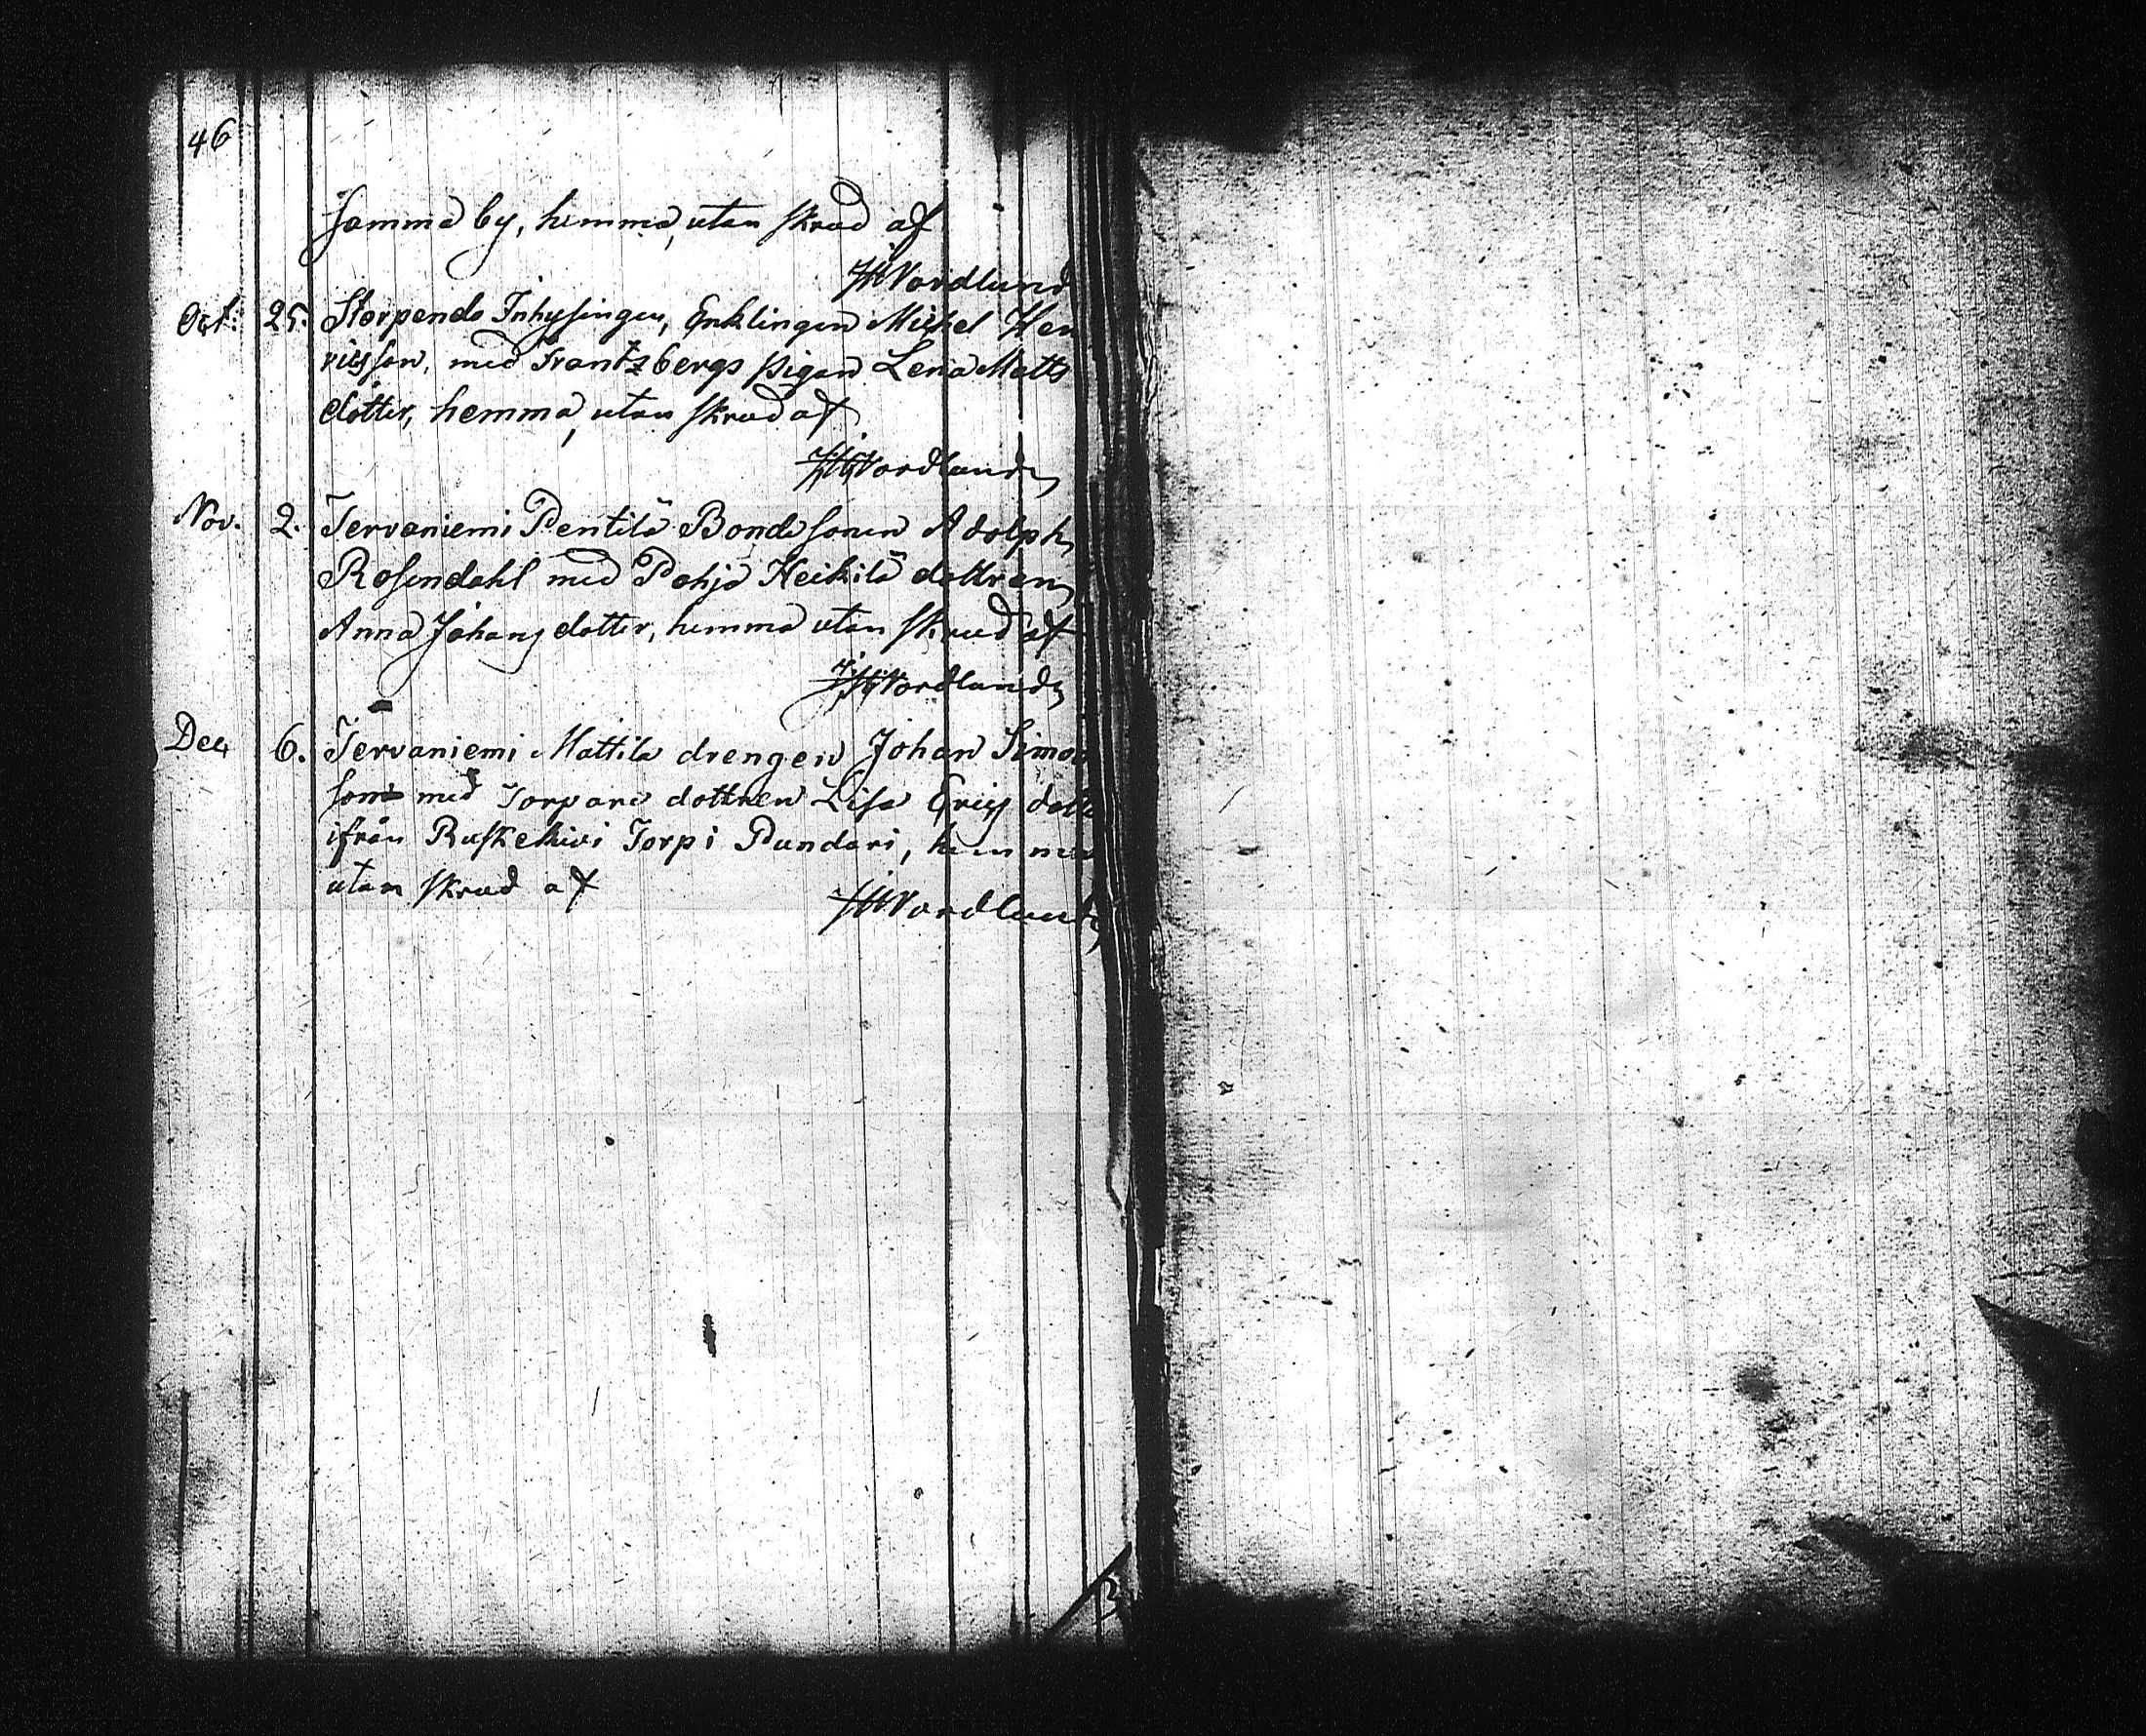 46
samma by, hemma, utan skrud af
Nordlund
Oct. 25. Storpends Inhysingen, Enklingen Michel Hen
ricsson, med Frantzbergs pigan Lena Matts
dotter, hemma, utan skrud af
Nordlund
Nov. 2. Tervaniemi Pentilä Bonde sonen Adolph
Rosendahl med Pohja Heikilä dottren
Anna Johans dotter, hemma utan skrud af
Nordlund
Dec. 6. Tervaniemi Mattila drengen Johan Simon
son med Torpare dottren Lisa Erics dott
ifrån Ruskekivi Torp i Pundari, hemma
utan skrud af
Nordlund